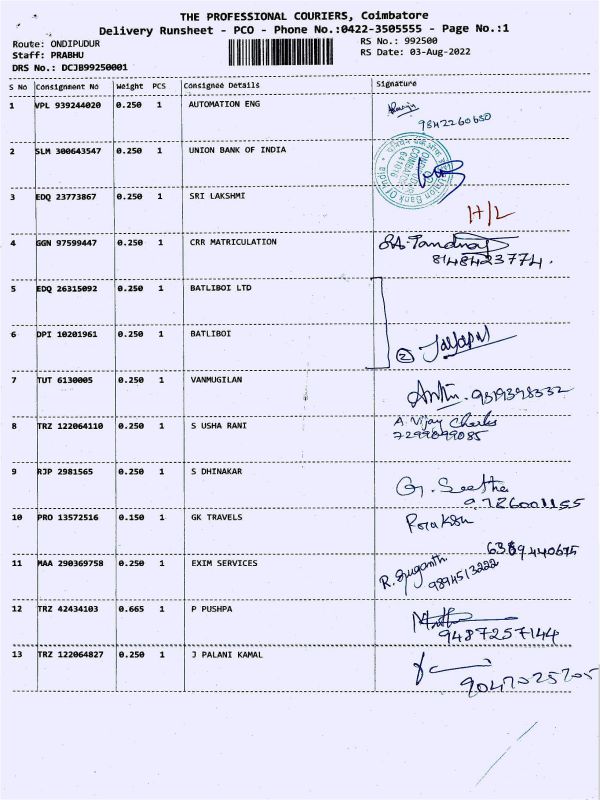 THE PROFESSIONAL COURIERS, Coimbatore
Delivery Runsheet - PCO - Phone No.:0422-3505555 - Page No.:1
Route: ONDIPUDUR
RS No.: 992500
Staff: PRABHU
RS Date: 03-Aug-2022
DRS No.: DCJB99250001
S No Consignment No Weight PCS Consignee Details Signature
1 VPL 939244020 0.250 1 AUTOMATION ENG
9842260680
2 SLM 300643547 0.250 1 UNION BANK OF INDIA
Union Bank Of India
COIMBATORE
3 EDQ 23773867 0.250 1 SRI LAKSHMI
H/L
4 GGN 97599447 0.250 1 CRR MATRICULATION
8148423774.
5 EDQ 26315092 0.250 1 BATLIBOI LTD
6 DPI 10201961 0.250 1 BATLIBOI
2
7 TUT 6130005 0.250 1 VANMUGILAN
8 TRZ 122064110 0.250 1 S USHA RANI
A. Vijay Charles
7299099085
9 RJP 2981565 0.250 1 S DHINAKAR
G. Seetha
9786001155
10 PRO 13572516 0.150 1 GK TRAVELS
11 MAA 290369758 0.250 1 EXIM SERVICES
9894513222
12 TRZ 42434103 0.665 1 P PUSHPA
9487257144
13 TRZ 122064827 0.250 1 J PALANI KAMAL